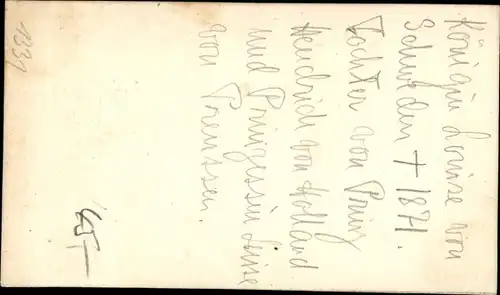 Königin Louise von
Schweden † 1871.
Tochter von Prinz
Hendrik von Holland
und Prinzessin Luise
von Preussen.
1331